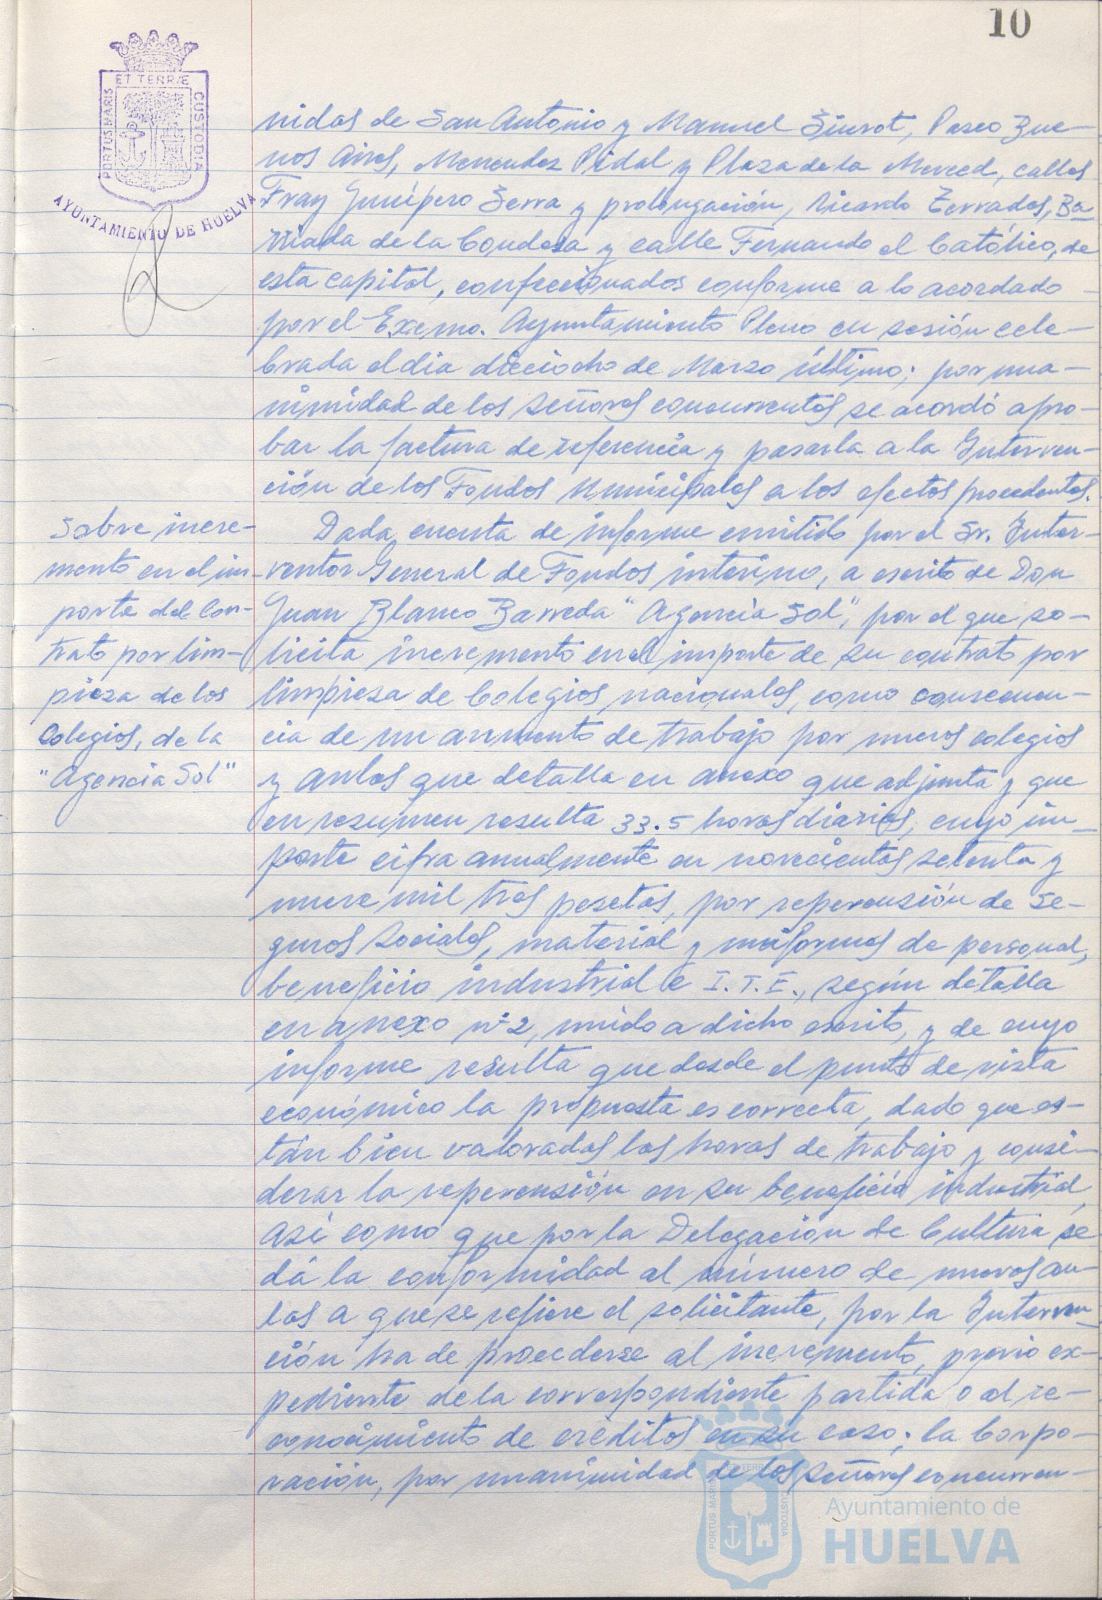 10
ET TERRÆ
PORTUS MARIS
CUSTODIA
AYUNTAMIENTO DE HUELVA
nidas de San Antonio y Manuel Siurot, Paseo Bue-
nos Aires, Menendez Pidal y Plaza de la Merced, calles
Fray Junípero Serra y prolongación, Ricardo Terrades, Ba-
rriada de la Condesa y calle Fernando el Católico, de
esta capital, confeccionados conforme a lo acordado
por el Excmo. Ayuntamiento Pleno en sesión cele-
brada el dia dieciocho de Marzo último; por una-
nimidad de los señores concurrentes se acordó apro-
bar la factura de referencia y pasarla a la Interven-
ción de los Fondos Municipales a los efectos procedentes.
Sobre incre-
mento en el im-
porte del con-
trato por lim-
pieza de los
Colegios, de la
"Agencia Sol"
Dada cuenta de informe emitido por el Sr. Inter-
ventor General de Fondos interino, a escrito de Don
Juan Blanco Barreda "Agencia Sol", por el que so-
licita incremento en el importe de su contrato por
limpieza de Colegios nacionales, como consecuen-
cia de un aumento de trabajo por nuevos colegios
y aulas que detalla en anexo que adjunta y que
en resumen resulta 33.5 horas diarias, cuyo im-
porte cifra anualmente en novecientas setenta y
nueve mil tres pesetas, por repercusión de Se-
guros Sociales, material y uniformes de personal,
beneficio industrial e I.T.E., según detalla
en anexo nº 2, unido a dicho escrito, y de cuyo
informe resulta que desde el punto de vista
económico la propuesta es correcta, dado que es-
tán bien valoradas las horas de trabajo y consi-
derar la repercusión en su beneficio industrial,
así como que por la Delegación de Cultura se
dá la conformidad al número de nuevas au-
las a que se refiere el solicitante, por la Interven-
ción ha de procederse al incremento, previo ex-
pediente de la correspondiente partida o al re-
conocimiento de creditos en su caso; la Corpo-
ración, por unanimidad de los señores concurren-
PORTUS MARIS
ET TERRÆ
CUSTODIA
Ayuntamiento de
HUELVA